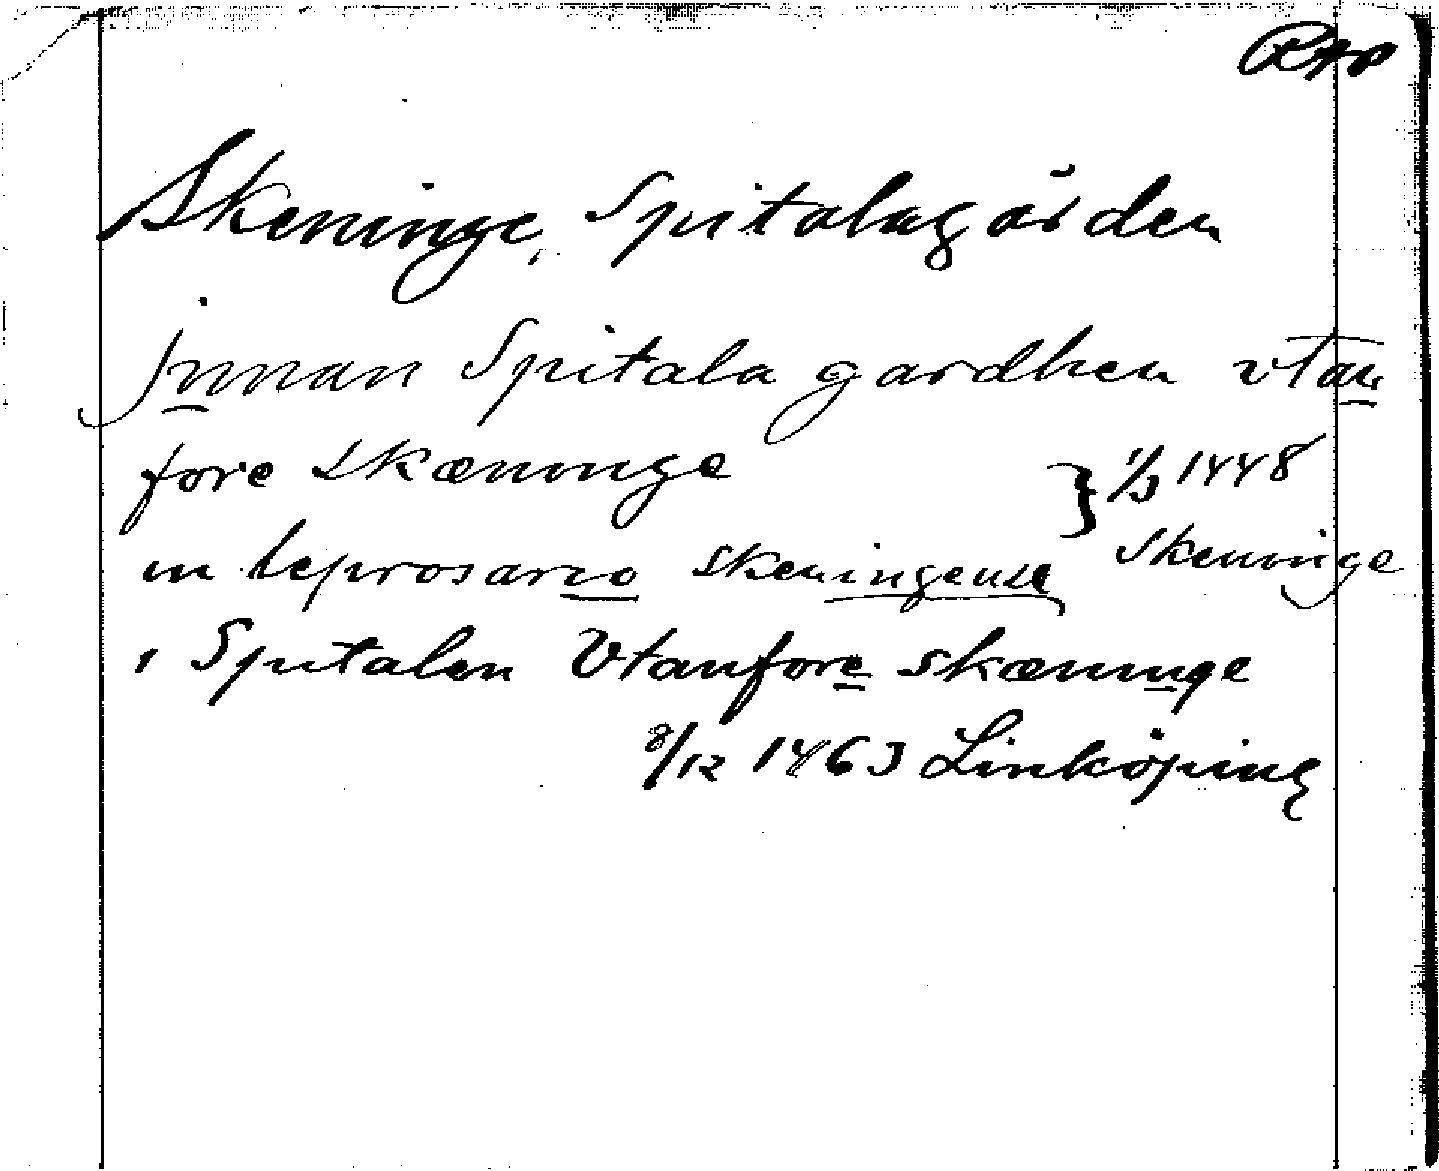 RAp
Skeninge, Spitalagården
jnnan Spitala gardhen vtan
fore skæninge } 1/3 1448
in leprosario skeningense Skeninge
i Spitalen Vtanfore skæninge
8/12 1463 Linköping